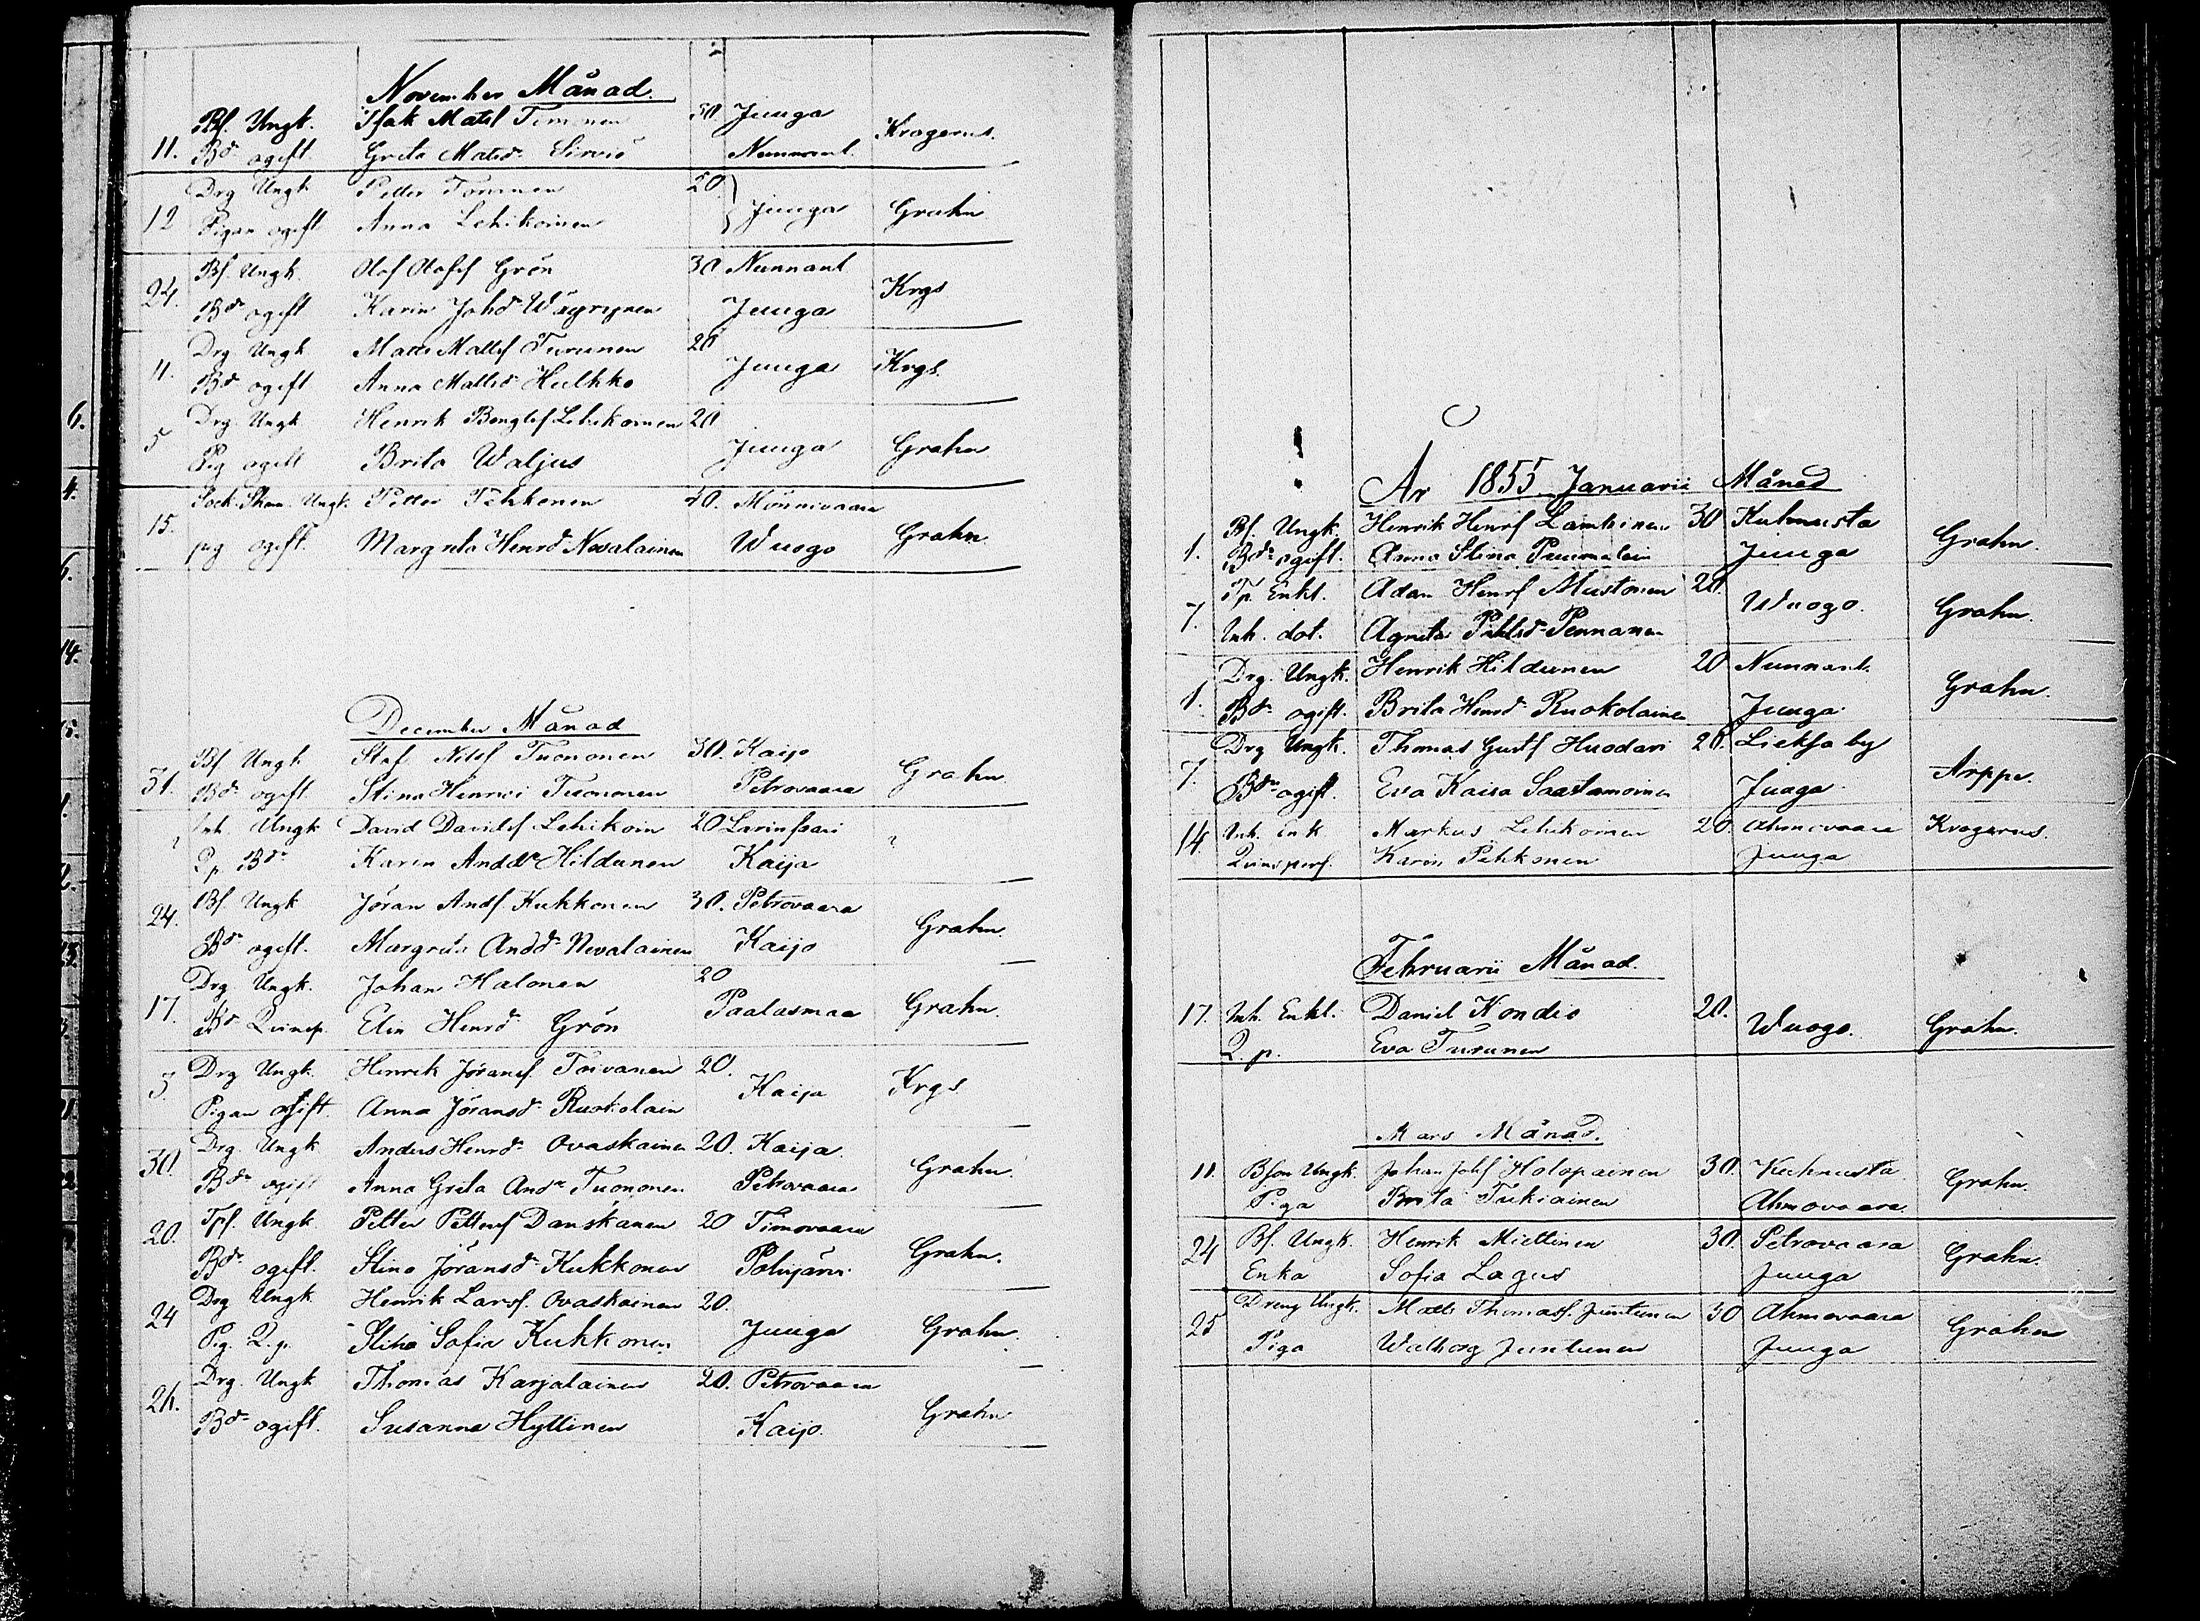 November Månad.
Bs. Ungk. Isak Matss Timonen 30. Juuga
11. Bdr ogift. Greta Matsdr Sirviö Nunnanl. Krogerus.
Drg Ungk Petter Toivonen 20
12 Pigan ogift Anna Lehikoinen Juuga Grahn
Bs. Ungk. Olof Olofss Grön 30 Nunnanl
24. Bdr ogift Karin Johdr Wäyrynen Juuga Krgs
Drg Ungk Matts Mattss Turunen 20
11. Bdr ogift Anna Mattsdr Hulkko Juuga Krgs.
Drg. Ungk Henrik Bengtss Lehikoinen 20
5 Pig ogift Brita Waljus Juuga Grahn
Sock. Skom. Ungk. Petter Pehkonen 40. Mönnivaara
15. pig ogift. Margreta Henrdr Nevalainen Wuogo Grahn.
December Månad
Bs Ungk Staf. Nilss Tuononen 30. Kaijo
31. Bdr ogift. Stina Henrici Tuononen Petrovaara Grahn.
Inh. Ungk David Davidss Lehikoin 20 Larinsaari
? Q.p. Bdr Karin Anddr Hildunen Kaija ?
Bs. Ungk Jöran Andss Kukkonen 30. Petrovaara
24. Bdr ogift. Margreta Anddr Nevalainen Kaijo Grahn.
Drg Ungk. Johan Halonen 20
17. Bdr Quinsp. Elin Henrdr Grön Paalasmaa Grahn.
Drg Ungk. Henrik Jöranss. Toivanen 20.
5. Pigan ogift. Anna Jöransdr Ruokolain Kaija Krgs
Drg. Ungk Anders Henrdr Ovaskainen 20. Kaija.
30. Bdr ogift Anna Greta Anddr Tuononen Petrovaara Grahn.
Tps. Ungk Petter Petterss Danskanen 20 Timovaara
20. Bdr ogift. Stina Jöransdr Kukkonen Polvijärvi Grahn.
Drg Ungk Henrik Larss. Ovaskainen 20.
24 Pig. Q. p. Stina Sofia Kukkonen Juuga Grahn.
Drg. Ungk Thomas Karjalainen 20. Petrovaara
26. Bdr ogift. Susanna Hyttinen Kaijo. Grahn
År 1855 Januarii Månad
Bs. Ungk. Henrik Henrss Lamminen 30 Kuhnusta
1. Bdr ogift. Anna Stina Puumalain Juuga Grahn.
Tp. Enkl. Adam Henrss Mustonen 20.
7. Inh. dot. Agneta Påhlsdr Pennanen Wuogo. Grahn.
Drg. Ungk. Henrik Hildunen 20 Nunnanl.
1. Bdr ogift. Brita Henrdr Ruokolainen Juuga. Grahn.
Drg Ungk. Thomas Gustss Huodari 20. Lieksa by
7. Bdr ogift. Eva Kaisa Saastamoinen Juuga. Arppe.
14. Inh. enk Markus Lehikoinen 20. Ahmovaara Krogerus.
Quinspers. Karin Pehkonen Juuga
Februarii Månad.
17. Inh. Enkl. Daniel Kondio 20. Wuogo. Grahn.
Q. p. Eva Turunen
Mars Månad.
11. Bson Ungk. Johan Johss Holopainen 30. Kuhnusta
Piga Brita Tukiainen Ahmovaara. Grahn.
24 Bs. Ungk. Henrik Miettinen 30. Petrovaara
Enka Sofia Lagus Juuga Grahn.
25 Dreng Ungk. Matts Thomass. Juntunen 30 Ahmovaara
Piga Walborg Juntunen Juuga Grahn
6.
4.